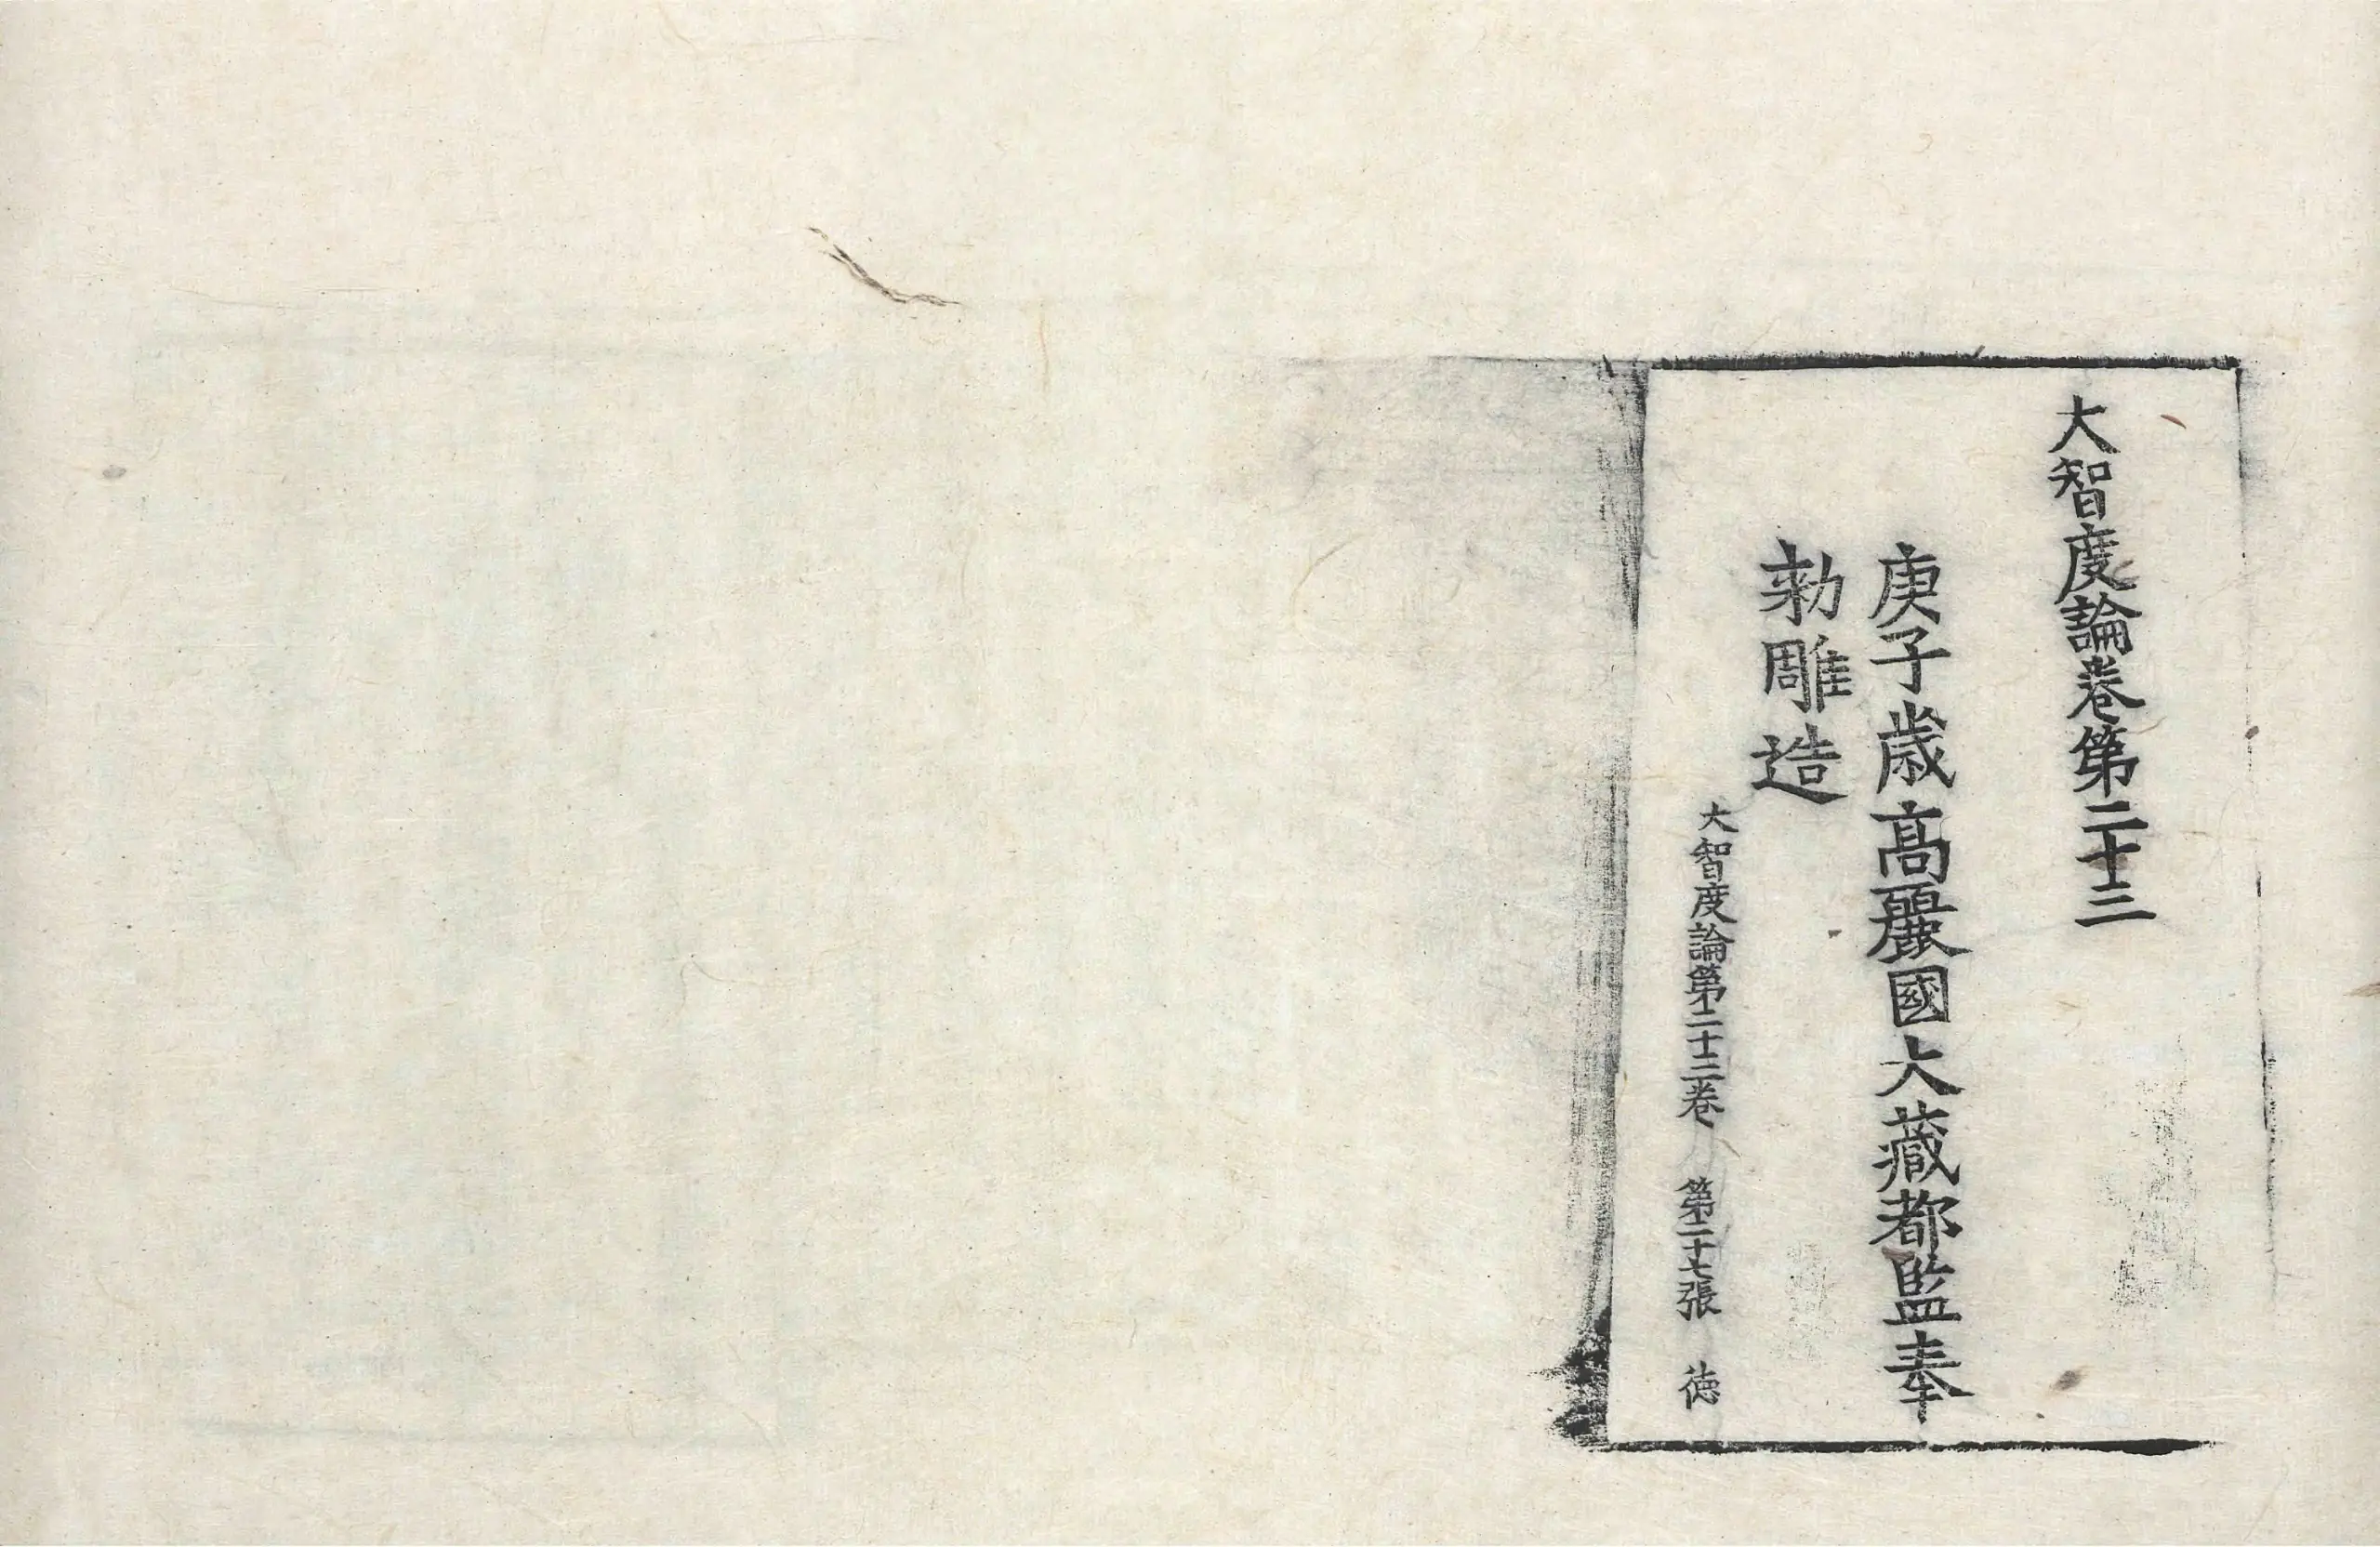 大智度論卷第二十三
庚子歲高麗國大藏都監奉
勑雕造
大智度論第二十三卷 第二十七張 徳